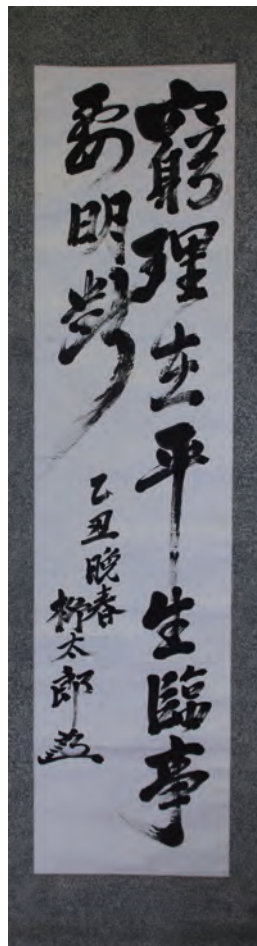 窮理在平生臨事
要明断
乙丑晩春
柳太郎